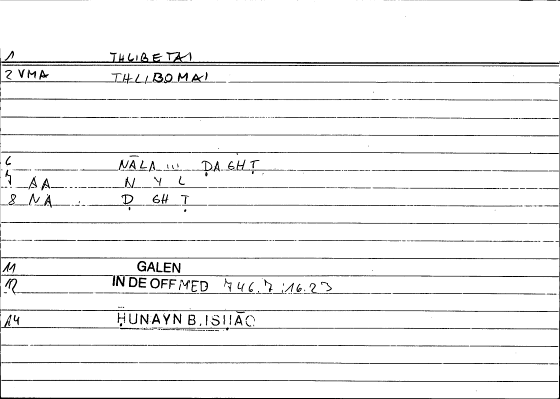 1 THLIBETAI
2 VMA THLIBOMAI
6 NĀLA ... ḌAGHṬ
7 AA N Y L
8 NA Ḍ GH Ṭ
11 GALEN
12 IN DE OFF MED 746.7;16.23
14 ḤUNAYN B. ISḤĀQ